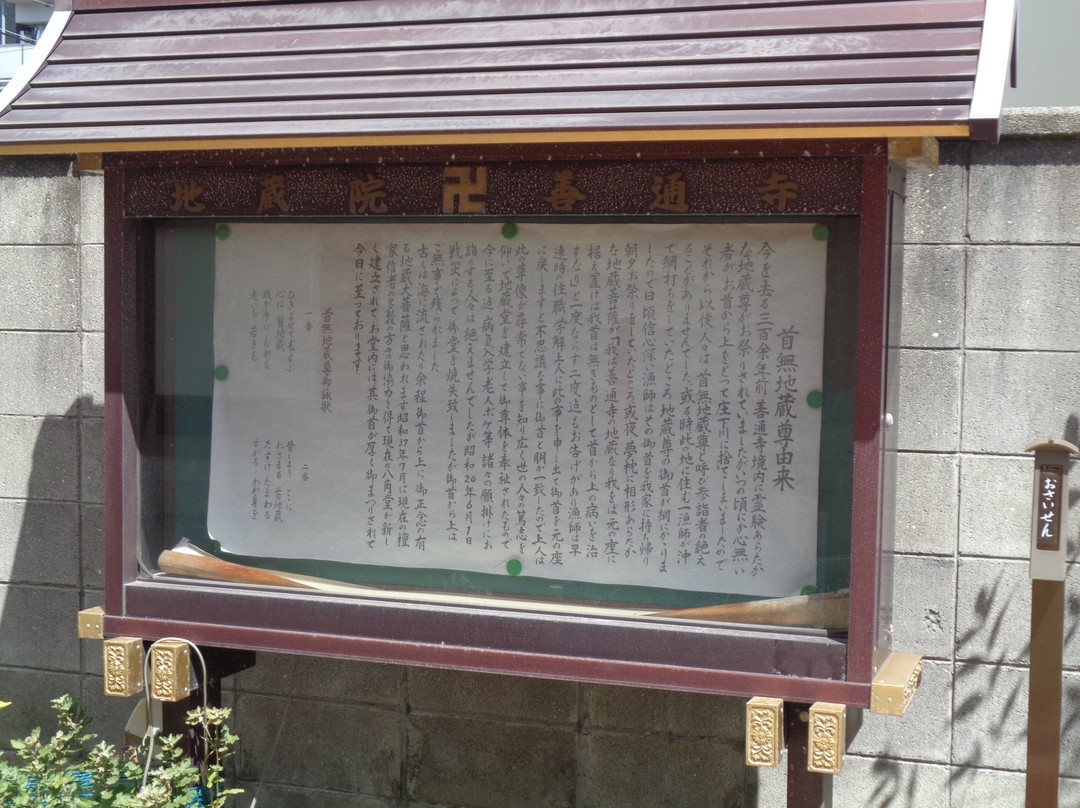 地蔵院 卍 善通寺
首無地蔵尊由来
今を去る三百余年前、善通寺境内に霊験あらたか
な地蔵尊がお祭りされていましたがいつの頃にか心無い
者がお首から上をとって庄下川に捨てしまいましたので
それから以後人々は首無地蔵尊と呼び参詣者の絶え
ることがありませんでした。或る時此の地に住む一漁師が沖
て網打ちをしていたところ地蔵尊の御首が網にかかりま
したので日頃信心深い漁師はその御首を我家に持ち帰り
朝夕お祭りをしていたところ或夜、夢枕に相形あらたか
な地蔵菩薩が「我は善通寺の地蔵なり我をば元の座に
据え置けば我首は無てものとして首から上の病いを治
すなり」と一度ならず二度迄もお告げがあり漁師は早
速時の住職学解上人に此の事を申し出て御首を元の座
に戻しますと不思議な事に御首と胴が一致したので上人は
此の尊像が尋常でない事を知り広く世の人々の篤志を
仰いで地蔵堂を建立して御尊体を奉祉されたもので
今に至る迄、病気、入学、老人ボケ等諸々の願掛けにお
詣りする人々は絶えませんでしたが昭和20年6月1日
戦災によって御堂を焼失致しましたが御首から上は
ご無事で残られました
古くは海に流されたり余程御首から上に御正念の有
る地蔵大菩薩と思われます昭和37年7月に現在の檀
家信者の多数の方々の御協力を得て現在の八角堂が新し
く建立されて、お堂内には、其の御首が厚くおまつりされて
今日に至っております。
首無地蔵尊御詠歌
一番
心は一つ 首地蔵
老いも 若きも
二番
昔しより ここに
おさまる 首地蔵
すがる わが身を
おさいせん